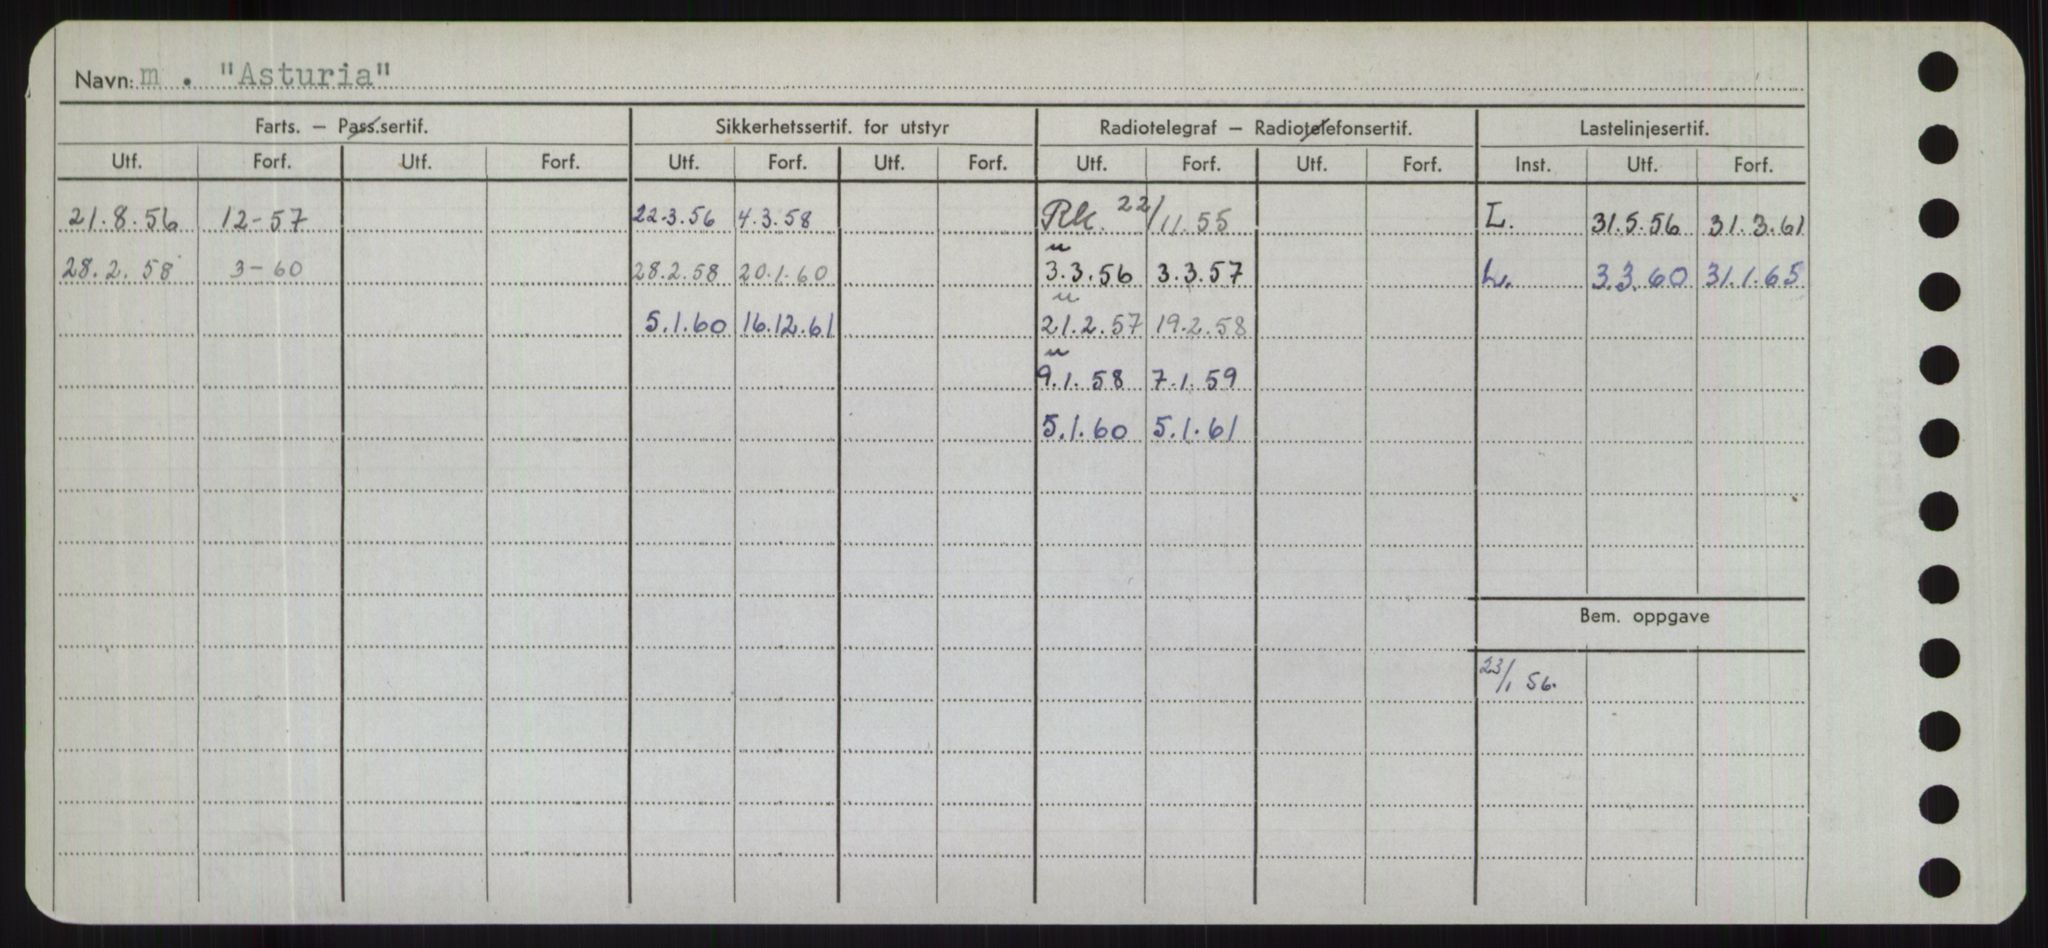 Navn: m . "Asturia"
Farts. — Pass.sertif. Sikkerhetssertif. for utstyr Radiotelegraf — Radiotelefonsertif. Lastelinjesertif.
Utf. Forf. Utf. Forf. Utf. Forf. Utf. Forf. Utf. Forf. Utf. Forf. Inst. Utf. Forf.
21.8.56 12-57 22-3.56 4.3.58 Rk. 22/11.55 L. 31.5.56 31.3.61
28.2.58 3-60 28.2.58 20.1.60 " 3.3.56 3.3.57 L. 3.3.60 31.1.65
5.1.60 16.12.61 " 21.2.57 19.2.58
" 9.1.58 7.1.59
5.1.60 5.1.61
Bem. oppgave
23/1 56.